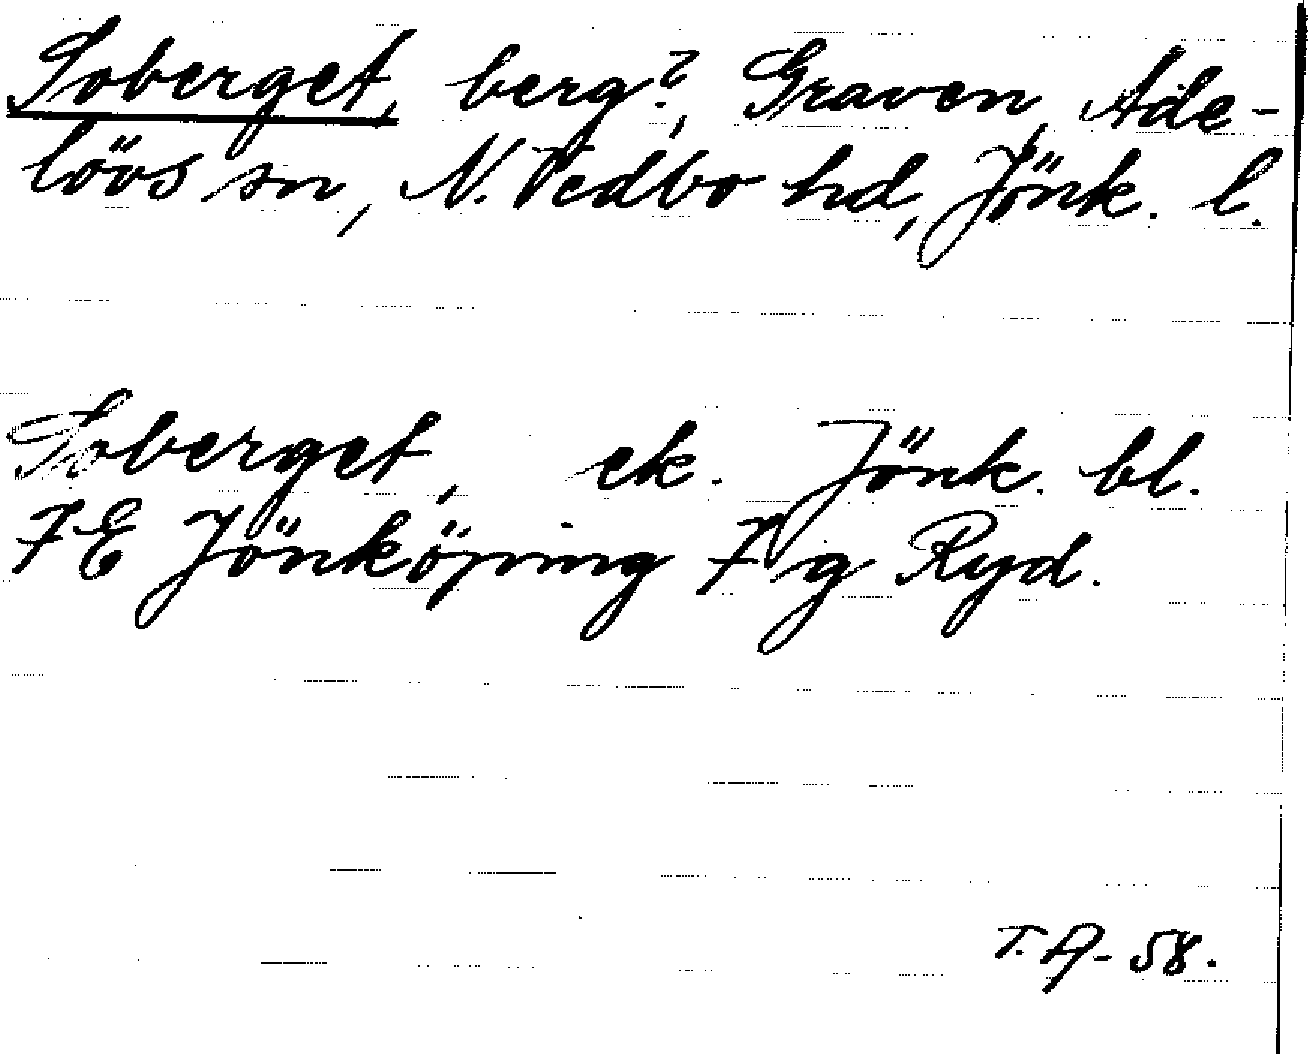 Soberget, berg?, Graven, Ade-
lövs sn, N. Vedbo hd, Jönk. l.
Soberget, ek. Jönk. bl.
7E Jönköping 7 g Ryd.
T. A-58.